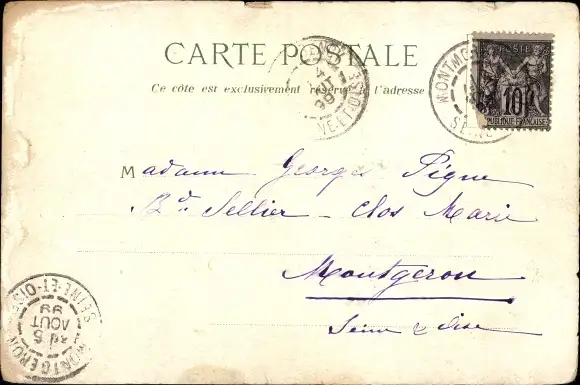 CARTE POSTALE
Ce côté est exclusivement réservé à l'adresse
POSTE
10
REPUBLIQUE FRANÇAISE
Madame Georges Pigne
Bd. Sellier - Clos Marie
Montgeron
Seine & Oise
MONTGERON
SEINE-ET-OISE
5
AOUT
99